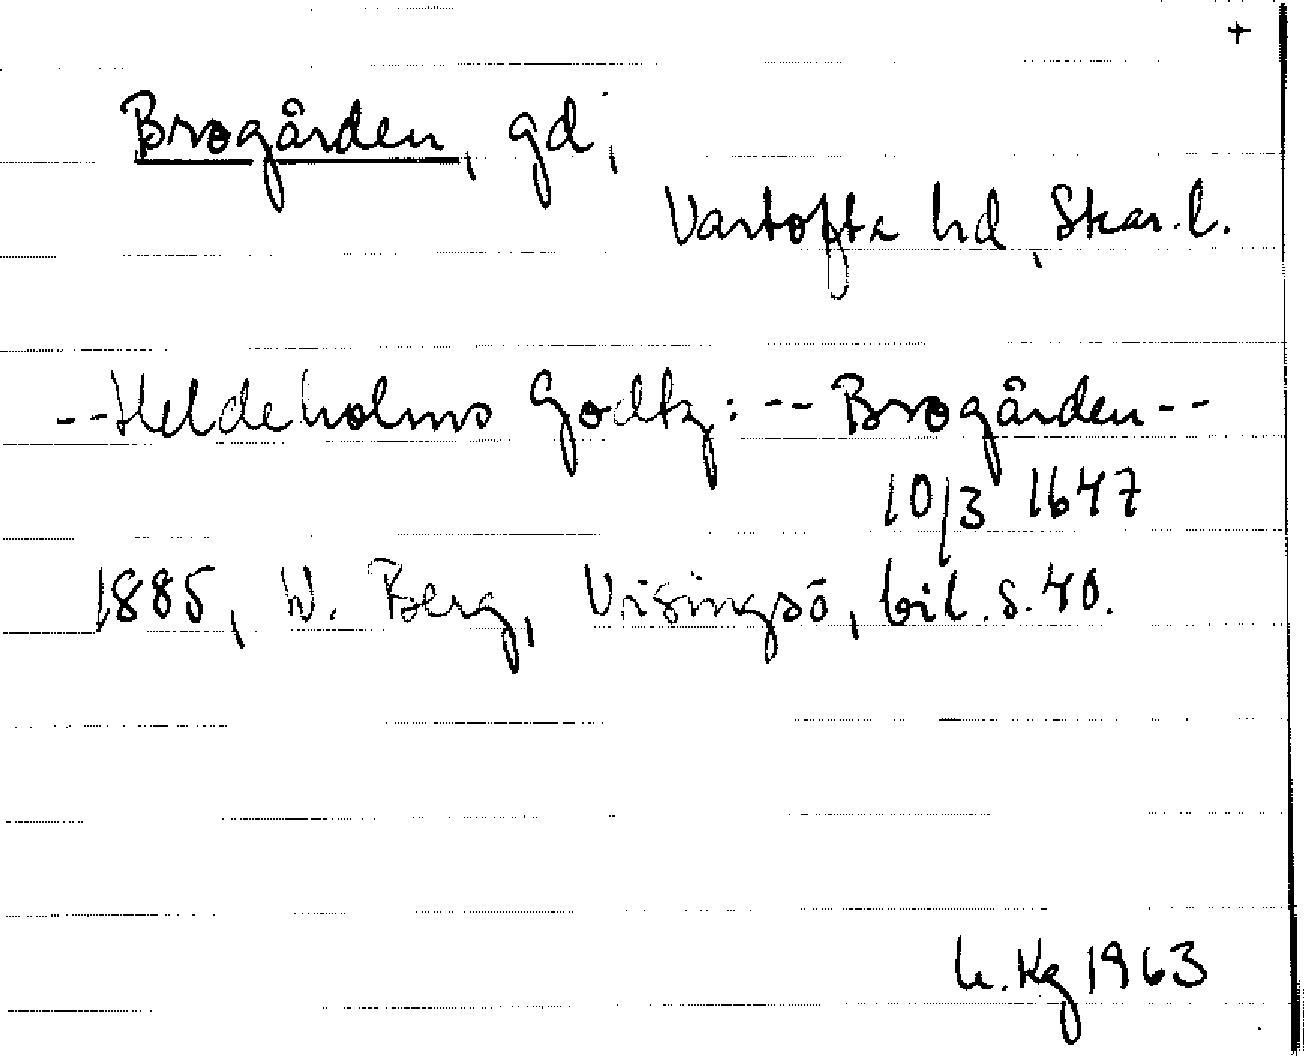 +
Brogården, gd,
Vartofta hd, Skar.l.
--Heldeholms Godtz: -- Brogården--
10/3 1647
1885, W. Berg, Visingsö, bil. s. 40.
Kg 1963